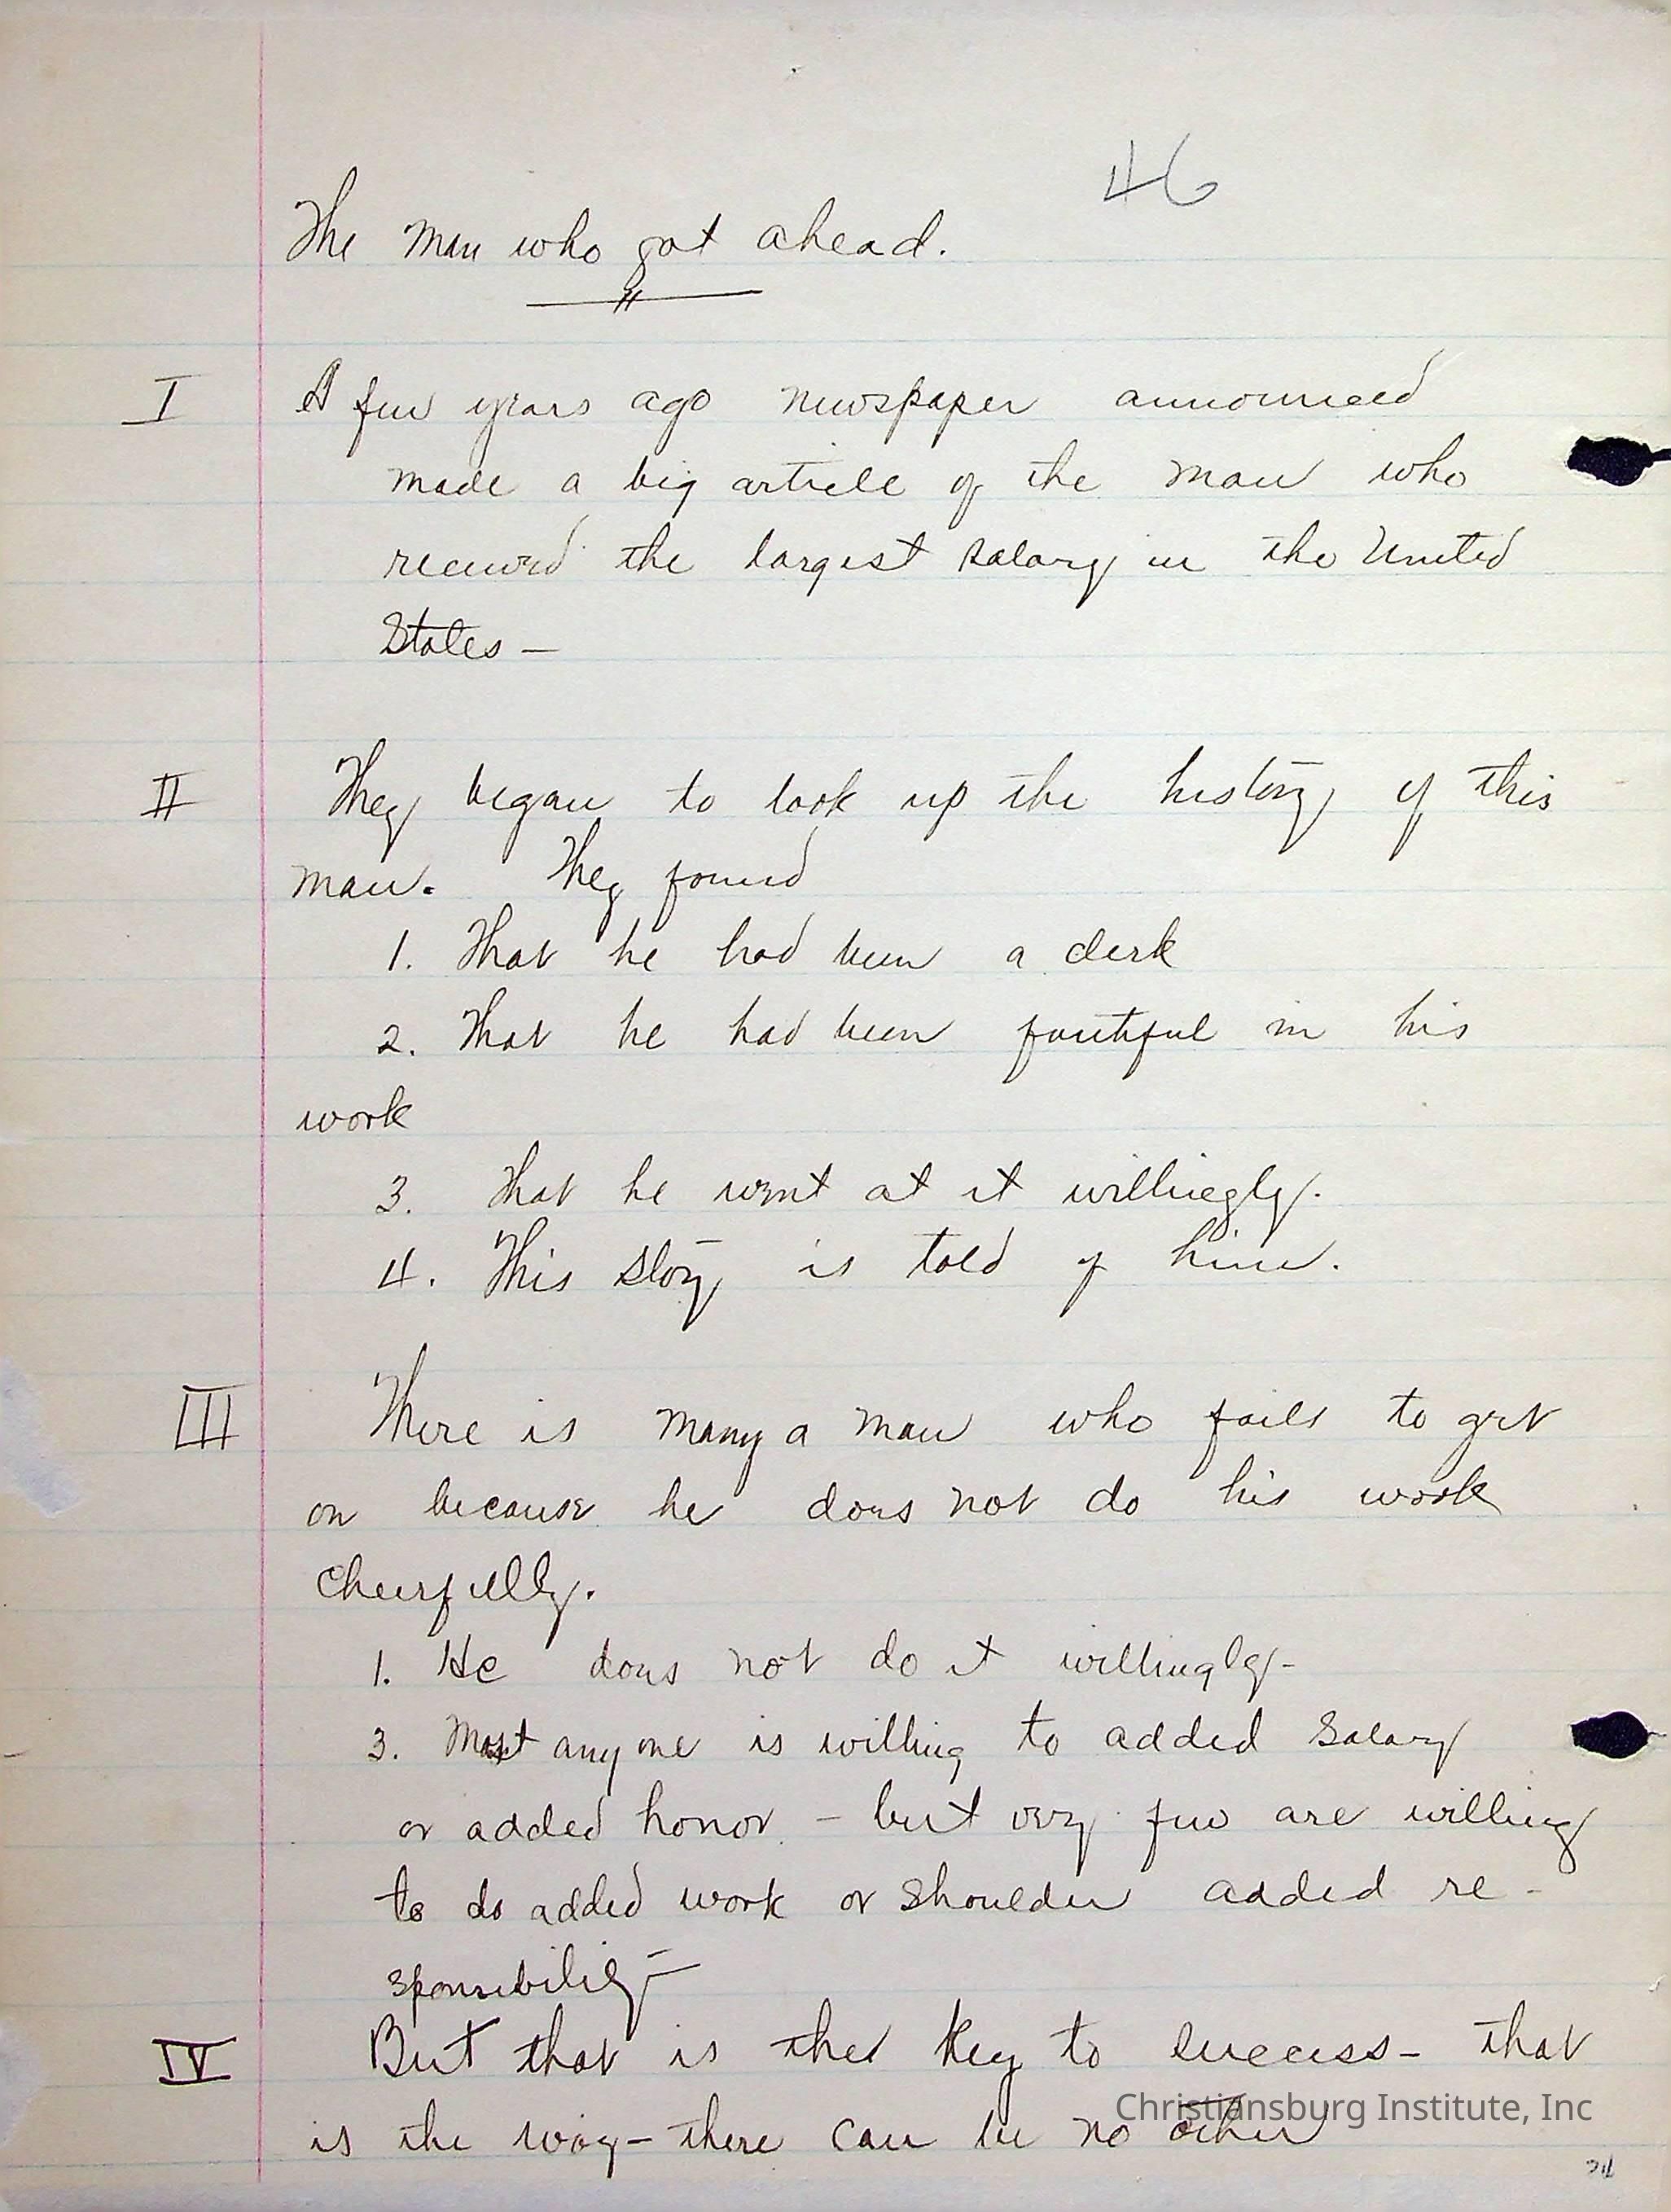 46
The man who got ahead.
I A few years ago newspaper announced
made a big article of the man who
received the largest salary in the United
States —
II They began to look up the history of this
man. They found
1. That he had been a clerk
2. That he had been faithful in his
work
3. That he went at it willingly.
4. This story is told of him.
III There is many a man who fails to get
on because he does not do his work
cheerfully.
1. He does not do it willingly -
3. Most any one is willing to added salary
or added honor - but very few are willing
to do added work or shoulder added re -
sponsibility -
IV But that is the key to success - that
is the way - there can be no other
Christiansburg Institute, Inc